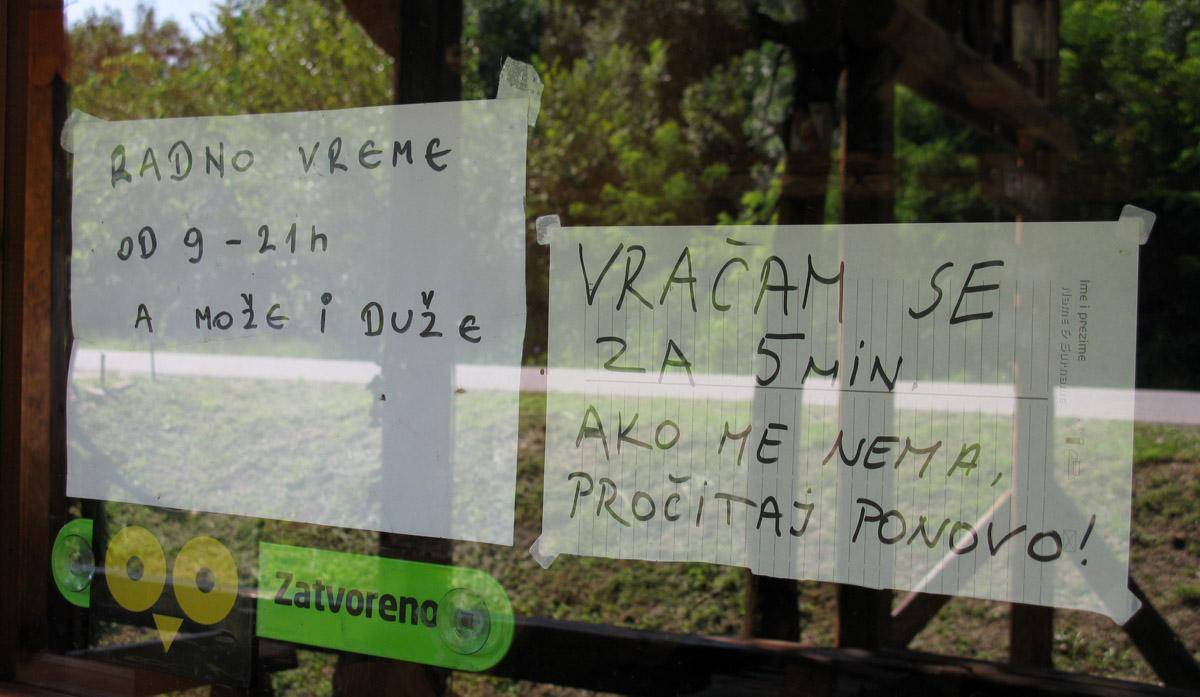 RADNO VREME
OD 9-21h
A MOŽE I DUŽE
VRAČAM SE
ZA 5 MiN.
AKO ME NEMA,
PROČITAJ PONOVO!
Ime i prezime
Name & Surname
Zatvoreno